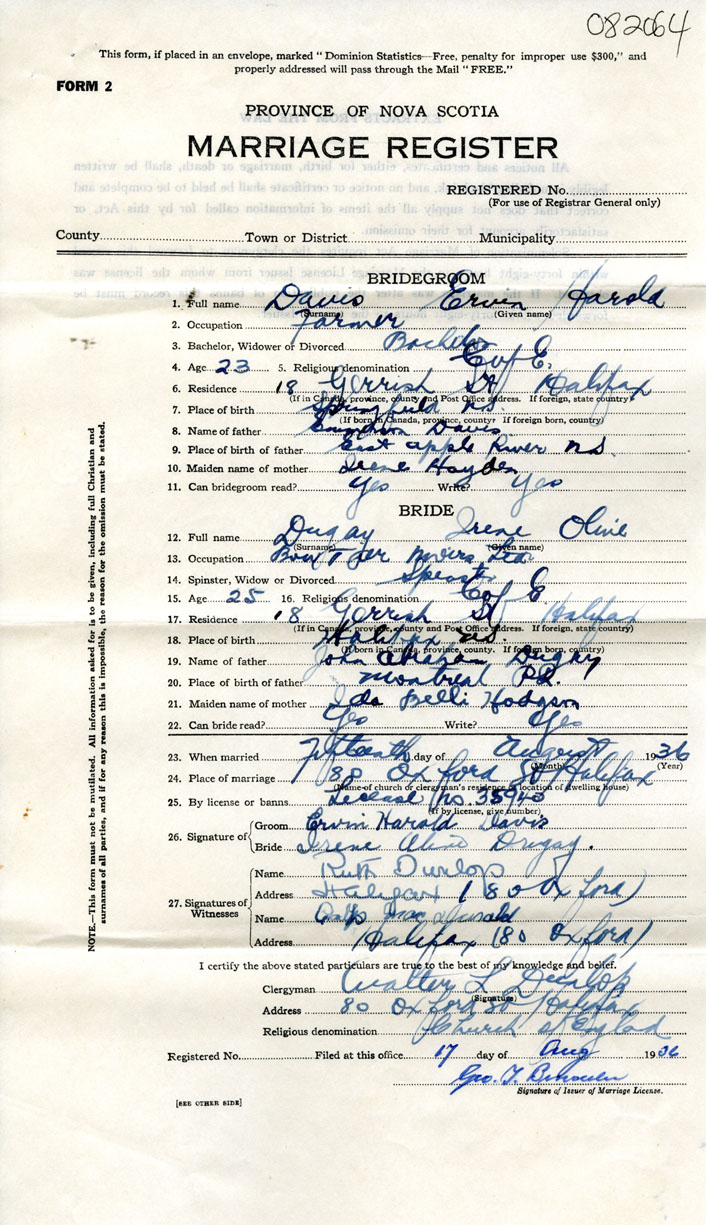 082064
This form, if placed in an envelope, marked "Dominion Statistics—Free, penalty for improper use $300," and
properly addressed will pass through the Mail "FREE."
FORM 2
PROVINCE OF NOVA SCOTIA
MARRIAGE REGISTER
REGISTERED No.
(For use of Registrar General only)
County Town or District Municipality
BRIDEGROOM
1. Full name Davis Ervin Harold
(Surname) (Given name)
2. Occupation Farmer
3. Bachelor, Widower or Divorced Bachelor
4. Age 23 5. Religious denomination C of E.
6. Residence 18 Gerrish St Halifax
(If in Canada, province, county and Post Office address. If foreign, state country)
7. Place of birth Springfield N.S.
(If born in Canada, province, county? If foreign born, country)
8. Name of father Davis
9. Place of birth of father East apple River N S
10. Maiden name of mother Irene Hayden
11. Can bridegroom read? Yes Write? Yes
BRIDE
12. Full name Dugay Irene Oline
(Surname) (Given name)
13. Occupation
14. Spinster, Widow or Divorced Spinster
15. Age 25 16. Religious denomination C of E
17. Residence 18 Gerrish St Halifax
(If in Canada, province, county and Post Office address. If foreign, state country)
18. Place of birth Halifax N.S.
(If born in Canada, province, county. If foreign born, country)
19. Name of father John Abraham Dugay
20. Place of birth of father Montreal P.Q.
21. Maiden name of mother Ida Belle Hodgson
22. Can bride read? Yes Write? Yes
23. When married Fifteenth day of August 1936
(Month) (Year)
24. Place of marriage 80 Oxford St Halifax
(Name of church or clergyman's residence or location of dwelling house)
25. By license or banns License No. 35940
(If by license, give number)
26. Signature of Groom Ervin Harold Davis
Bride Irene Dugay.
27. Signatures of Witnesses Name Ruth Dunlop
Address Halifax (80 Oxford)
Name
Address Halifax (80 Oxford)
I certify the above stated particulars are true to the best of my knowledge and belief.
Clergyman Walter L Dunlop
(Signature)
Address 80 Oxford St Halifax
Religious denomination Church of England
Registered No. Filed at this office 17 day of Aug 1936
Geo. T.
Signature of Issuer of Marriage License.
[SEE OTHER SIDE]
NOTE.—This form must not be mutilated. All information asked for is to be given, including full Christian and
surnames of all parties, and if for any reason this is impossible, the reason for the omission must be stated.